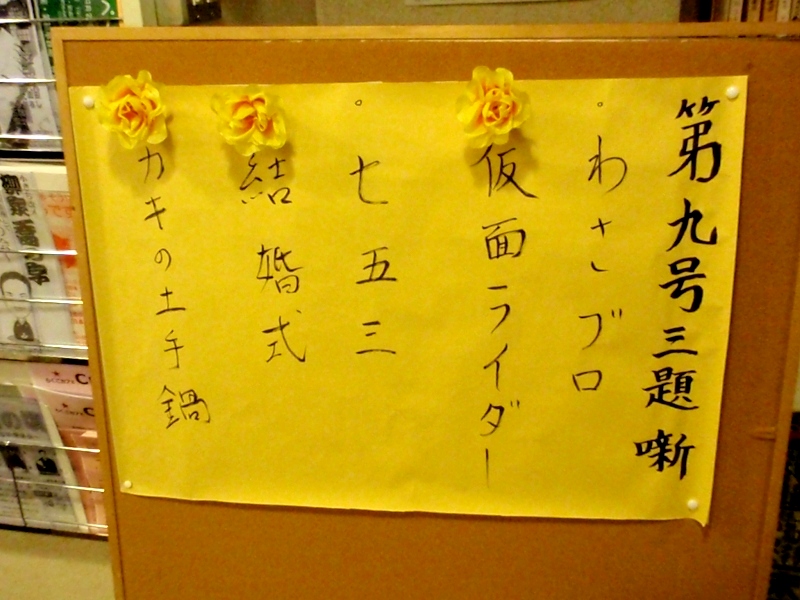 第九号三題噺
。わさブロ
仮面ライダー
。七五三
結婚式
カキの土手鍋